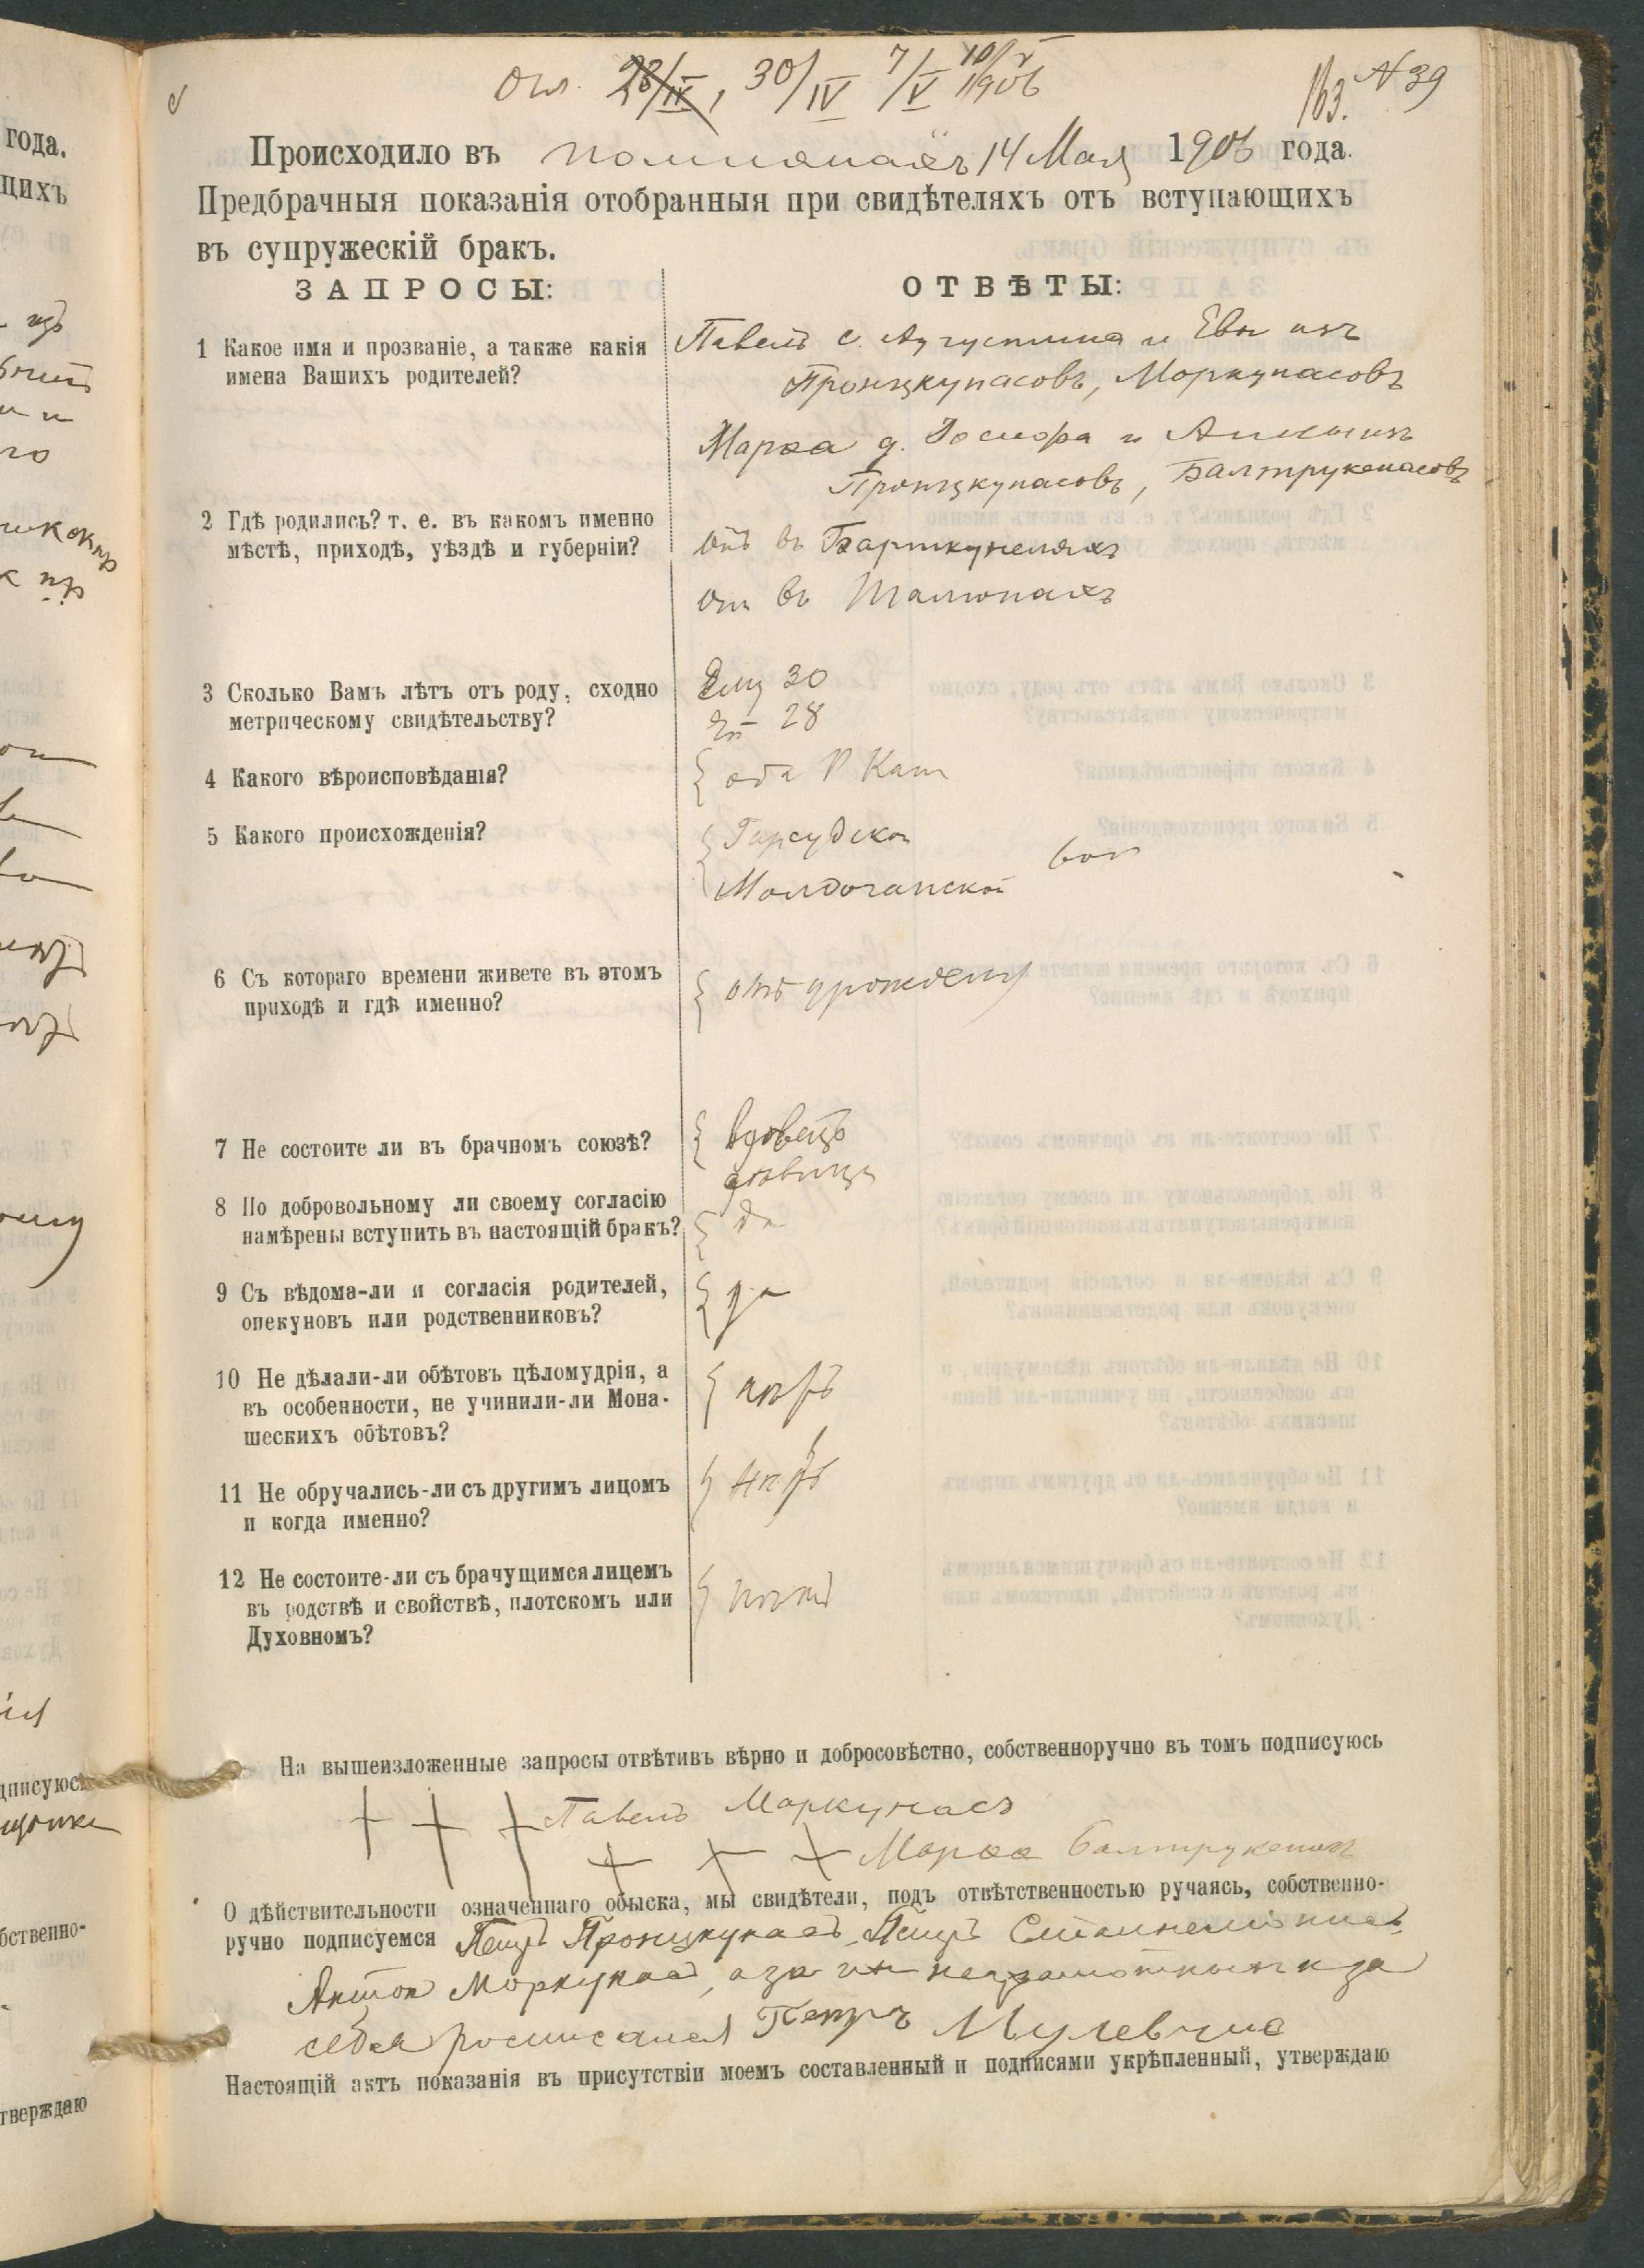 Огл. 28/IV, 30/IV 7/V 10/V 1906
163. N 39
Происходило въ 14 Мая 1906 года.
Предбрачныя показанія отобранныя при свидѣтеляхъ отъ вступающихъ
въ супружескій бракъ.
ЗАПРОСЫ:
ОТВѢТЫ:
1 Какое имя и прозваніе, а также какія
имена Вашихъ родителей?
Павелъ с. Аугустина и Евы изъ
Пронцкунасовъ, Моркунасовъ
Марѳа д. Іосифа и Анны изъ
Пронцкунасовъ, Балтрукенасовъ
2 Гдѣ родились? т. е. въ какомъ именно
мѣстѣ, приходѣ, уѣздѣ и губерніи?
онъ въ Барткунеляхъ
она въ Шалюнахъ
3 Сколько Вамъ лѣтъ отъ роду, сходно
метрическому свидѣтельству?
Ему 30
Ей 28
4 Какого вѣроисповѣданія?
оба Р Кат
5 Какого происхожденія?
Молдочанской вол
6 Съ котораго времени живете въ этомъ
приходѣ и гдѣ именно?
отъ урожденія
7 Не состоите ли въ брачномъ союзѣ?
вдовецъ
дѣвица
8 По добровольному ли своему согласію
намѣрены вступить въ настоящій бракъ?
да
9 Съ вѣдома-ли и согласія родителей,
опекуновъ или родственниковъ?
да
10 Не дѣлали-ли обѣтовъ цѣломудрія, а
въ особенности, не учинили-ли Мона-
шескихъ обѣтовъ?
нѣтъ
11 Не обручались-ли съ другимъ лицомъ
и когда именно?
нѣтъ
12 Не состоите-ли съ брачущимся лицемъ
въ родствѣ и свойствѣ, плотскомъ или
Духовномъ?
нѣтъ
На вышеизложенные запросы отвѣтивъ вѣрно и добросовѣстно, собственноручно въ томъ подписуюсь
+ + + Павелъ Моркунасъ
+ + + Марѳа Балтрукенасъ
О дѣйствительности означеннаго обыска, мы свидѣтели, подъ отвѣтственностью ручаясь, собственно-
ручно подписуемся Петръ Пронцкунасъ, Петръ
Антон Моркунас, а за их неграмотных и за
себя росписался Петръ Мулевчис
Настоящій актъ показанія въ присутствіи моемъ составленный и подписями укрѣпленный, утверждаю